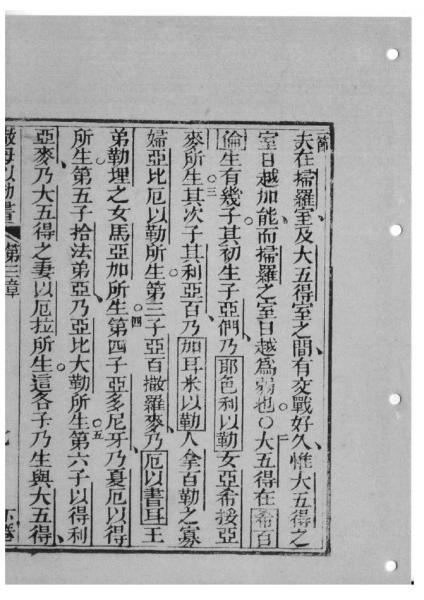 一節
夫在掃羅室及大五得室之間有交戰好久惟大五得之
室日越加能而掃羅之室日越爲弱也〇二大五得在希百
倫生有幾子其初生子亞們乃耶色利以勒女亞希接亞
麥所生三其次子其利亞百乃加耳米以勒人拿百勒之寡
婦亞比厄以勒所生第三子亞百撒羅麥乃厄以書耳王
弟勒埋之女馬亞加所生四第四子亞多尼牙乃夏厄以得
所生第五子拾法弟亞乃亞比大勒所生五第六子以得利
亞麥乃大五得之妻以厄拉所生這各子乃生與大五得
撒母以勒書 第三章 七 下卷